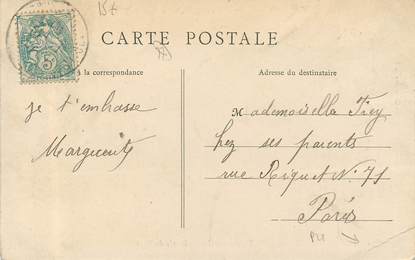 15f
CARTE POSTALE
à la correspondance
Adresse du destinataire
je t'embrasse
Marguerite
Mademoiselle
chez ses parents
rue Riquet N. 71
Paris